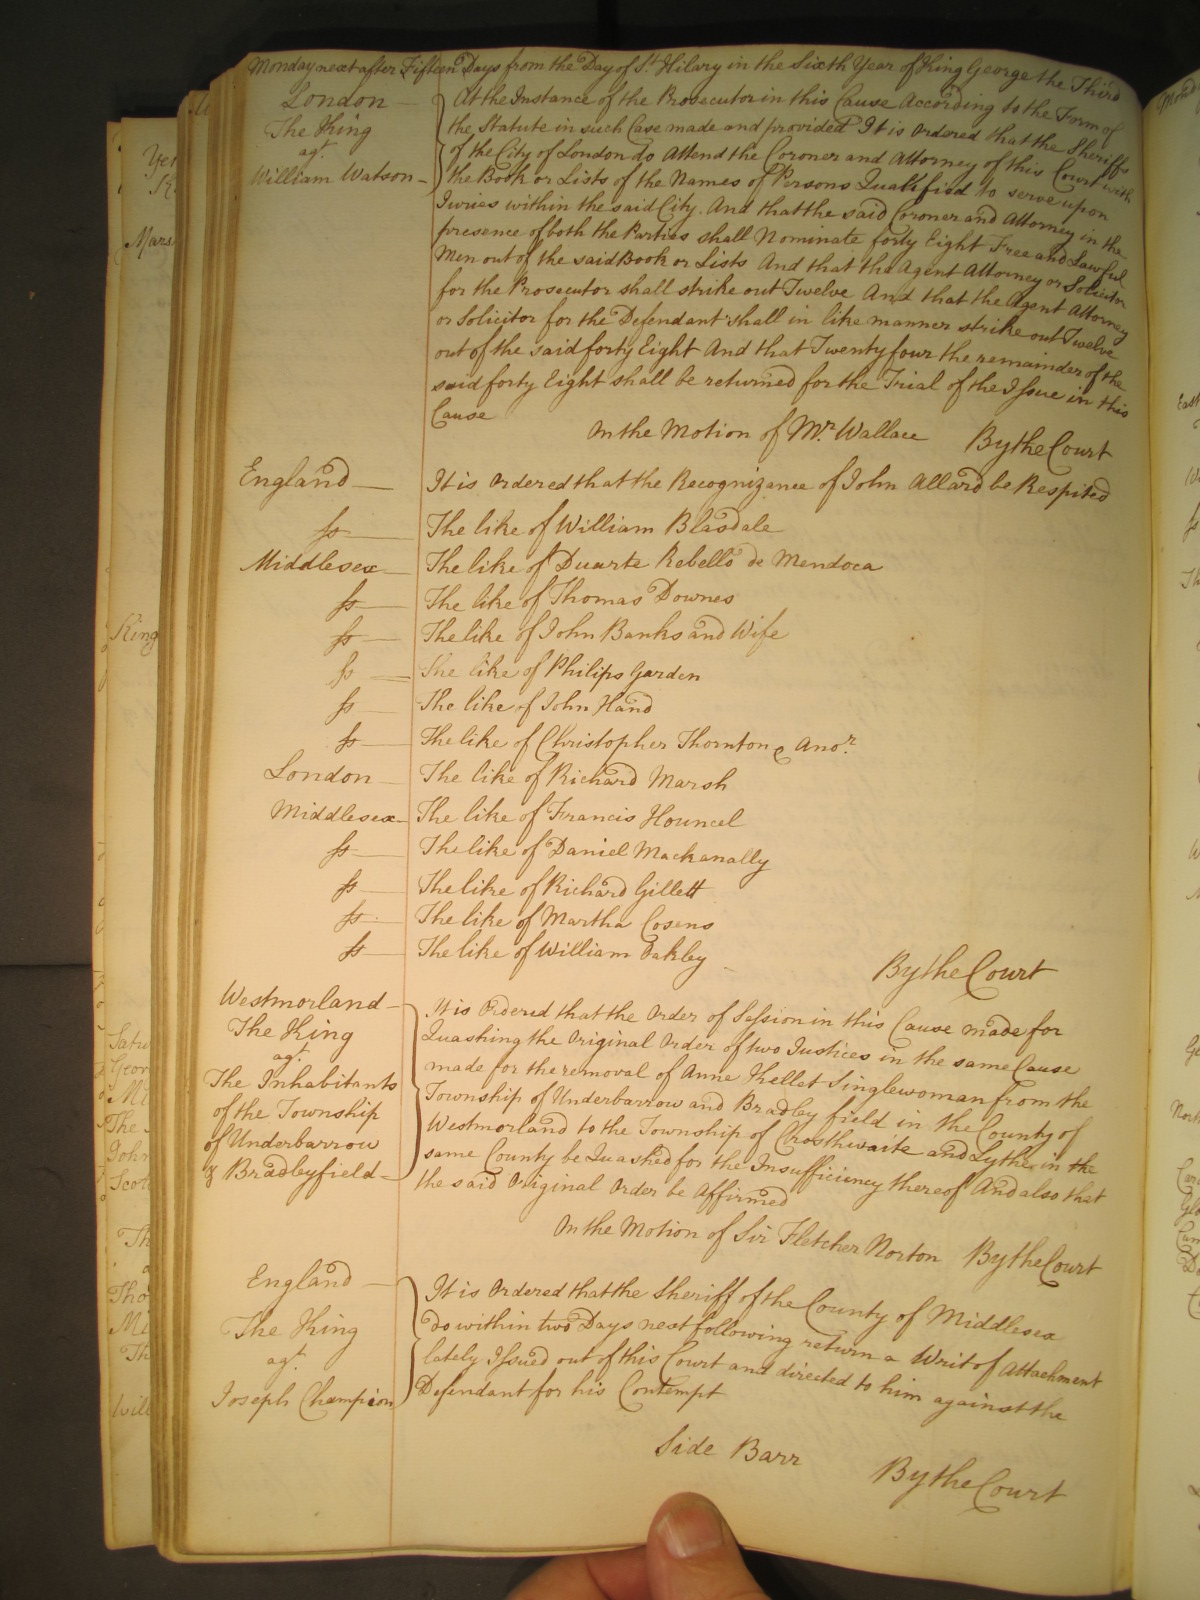 Monday next after Fifteen Days from the Day of St. Hilary in the Sixth Year of King George the Third
London
The King
agt.
William Watson
At the Instance of the Prosecutor in this Cause According to the Form of
the Statute in such Case made and provided It is Ordered that the Sheriffs
of the City of London do Attend the Coroner and Attorney of this Court with
the Book or Lists of the Names of Persons Qualified to serve upon
Juries within the said City. And that the said Coroner and Attorney in the
presence of both the Parties shall Nominate forty Eight Free and Lawful
Men out of the said Book or Lists And that the Agent Attorney or Solicitor
for the Prosecutor shall strike out Twelve And that the Agent Attorney
or Solicitor for the Defendant shall in like manner strike out Twelve
out of the said forty Eight And that Twenty four the remainder of the
said forty Eight shall be returned for the Trial of the Issue in this
Cause
On the Motion of Mr. Wallace By the Court
England It is Ordered that the Recognizance of John Allard be Respited
ss The like of William Blasdale
Middlesex The like of Duarte Rebello de Mendoca
ss The like of Thomas Downes
ss The like of John Banks and Wife
ss The like of Philips Garden
ss The like of John Hand
ss The like of Christopher Thornton & Anor.
London The like of Richard Marsh
Middlesex The like of Francis Houncel
ss The like of Daniel Mackanally
ss The like of Richard Gillett
ss The like of Martha Cosens
ss The like of William Oakley
By the Court
Westmorland
The King
agt.
The Inhabitants
of the Township
of Underbarrow
& Bradleyfield
It is Ordered that the Order of Session in this Cause made for
Quashing the Original Order of two Justices in the same Cause
made for the removal of Anne Kellet Singlewoman from the
Township of Underbarrow and Bradley field in the County of
Westmorland to the Township of Crosthwaite and Lythe in the
same County be Quashed for the Insufficiency thereof And also that
the said Original Order be Affirmed
On the Motion of Sir Fletcher Norton By the Court
England
The King
agt.
Joseph Champion
It is Ordered that the Sheriff of the County of Middlesex
do within two Days next following return a Writ of Attachment
lately Issued out of this Court and directed to him against the
Defendant for his Contempt
Side Barr By the Court